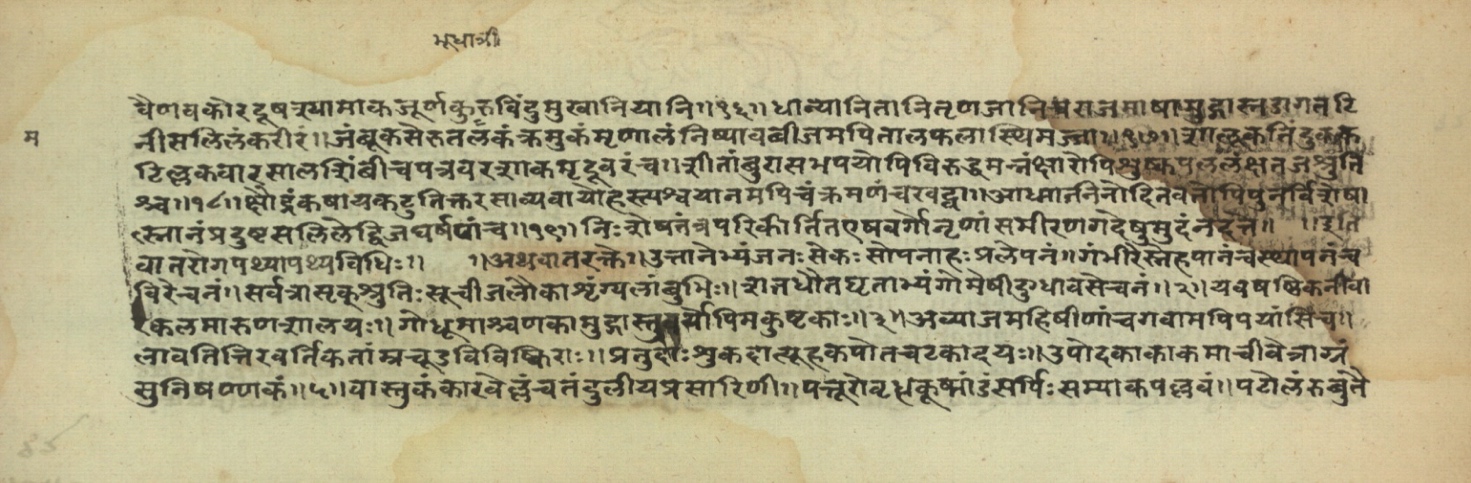 भूधात्री
म
वैणवकोरदूषश्यामाकजूर्णकुरुविंदुमुखानियानि॥१६॥धान्यानितानितृणजानि माषामुद्गा
नीसलिलंकरीरं॥जंबूकसेरुतलकंक्रमुकंमृणालंनिष्पावबीजमपितालफलास्थिमज्जा॥१७॥शालूकतिंदुक
टिल्लकपारसालशिंबीचपत्रवरशाकमृदूवरंच॥शीतांबुरासभपयोपिविरुद्धमन्नंक्षारोपिशुष्कपललंक्षतजश्रुति
श्च॥१८॥क्षौद्रंकषायकटुतिक्तरसाव्यवायोहस्त्यश्वयानमपिचंक्रमणंचखट्वा॥आध्माननिनोदितवतोपिपुनर्विशेषा
त्स्नानंप्रदुष्टसलिलेद्विजघर्षणंच॥१९॥निःशेषतंत्रपरिकीर्तितएषवर्गोनृणांसमीरणगदेषुमुदंनदत्ते॥ ॥इति
वातरोगपथ्यापथ्यविधिः॥ ॥अथवातरक्ते॥उत्तानेभ्यंजनःसेकःसोपनाहःप्रलेपनं॥गंभीरेस्नेहपानंचस्थापनंच
विरेचनं॥सर्वत्रासृक्श्रुतिःसूचीजलौकाशृंग्यलांबुभिः॥शतधौतघृताभ्यंगोमेषीदुग्धावसेचनं॥२॥यवषष्टिकनीवा
रकलमारुणशालयः॥गोधूमाश्चणकामुद्गास्तुवर्योपिमकुष्टकाः॥३॥अव्याजमहिषीणांचगवामपिपयांसिच॥
लावतित्तिरवर्तिकताम्रचूडविविष्किराः॥प्रतुदाःशुकदात्यूहकपोतचटकादयः॥उपोदकाकाकमाचीवेत्राग्रं
सुनिषण्णकं॥५॥वास्तुकंकारवेल्लंचतंदुलीयप्रसारिणी॥पत्तूरोवृद्धकूष्मांडंसर्पिःसम्पाकपल्लवं॥पटोलंरुबुते